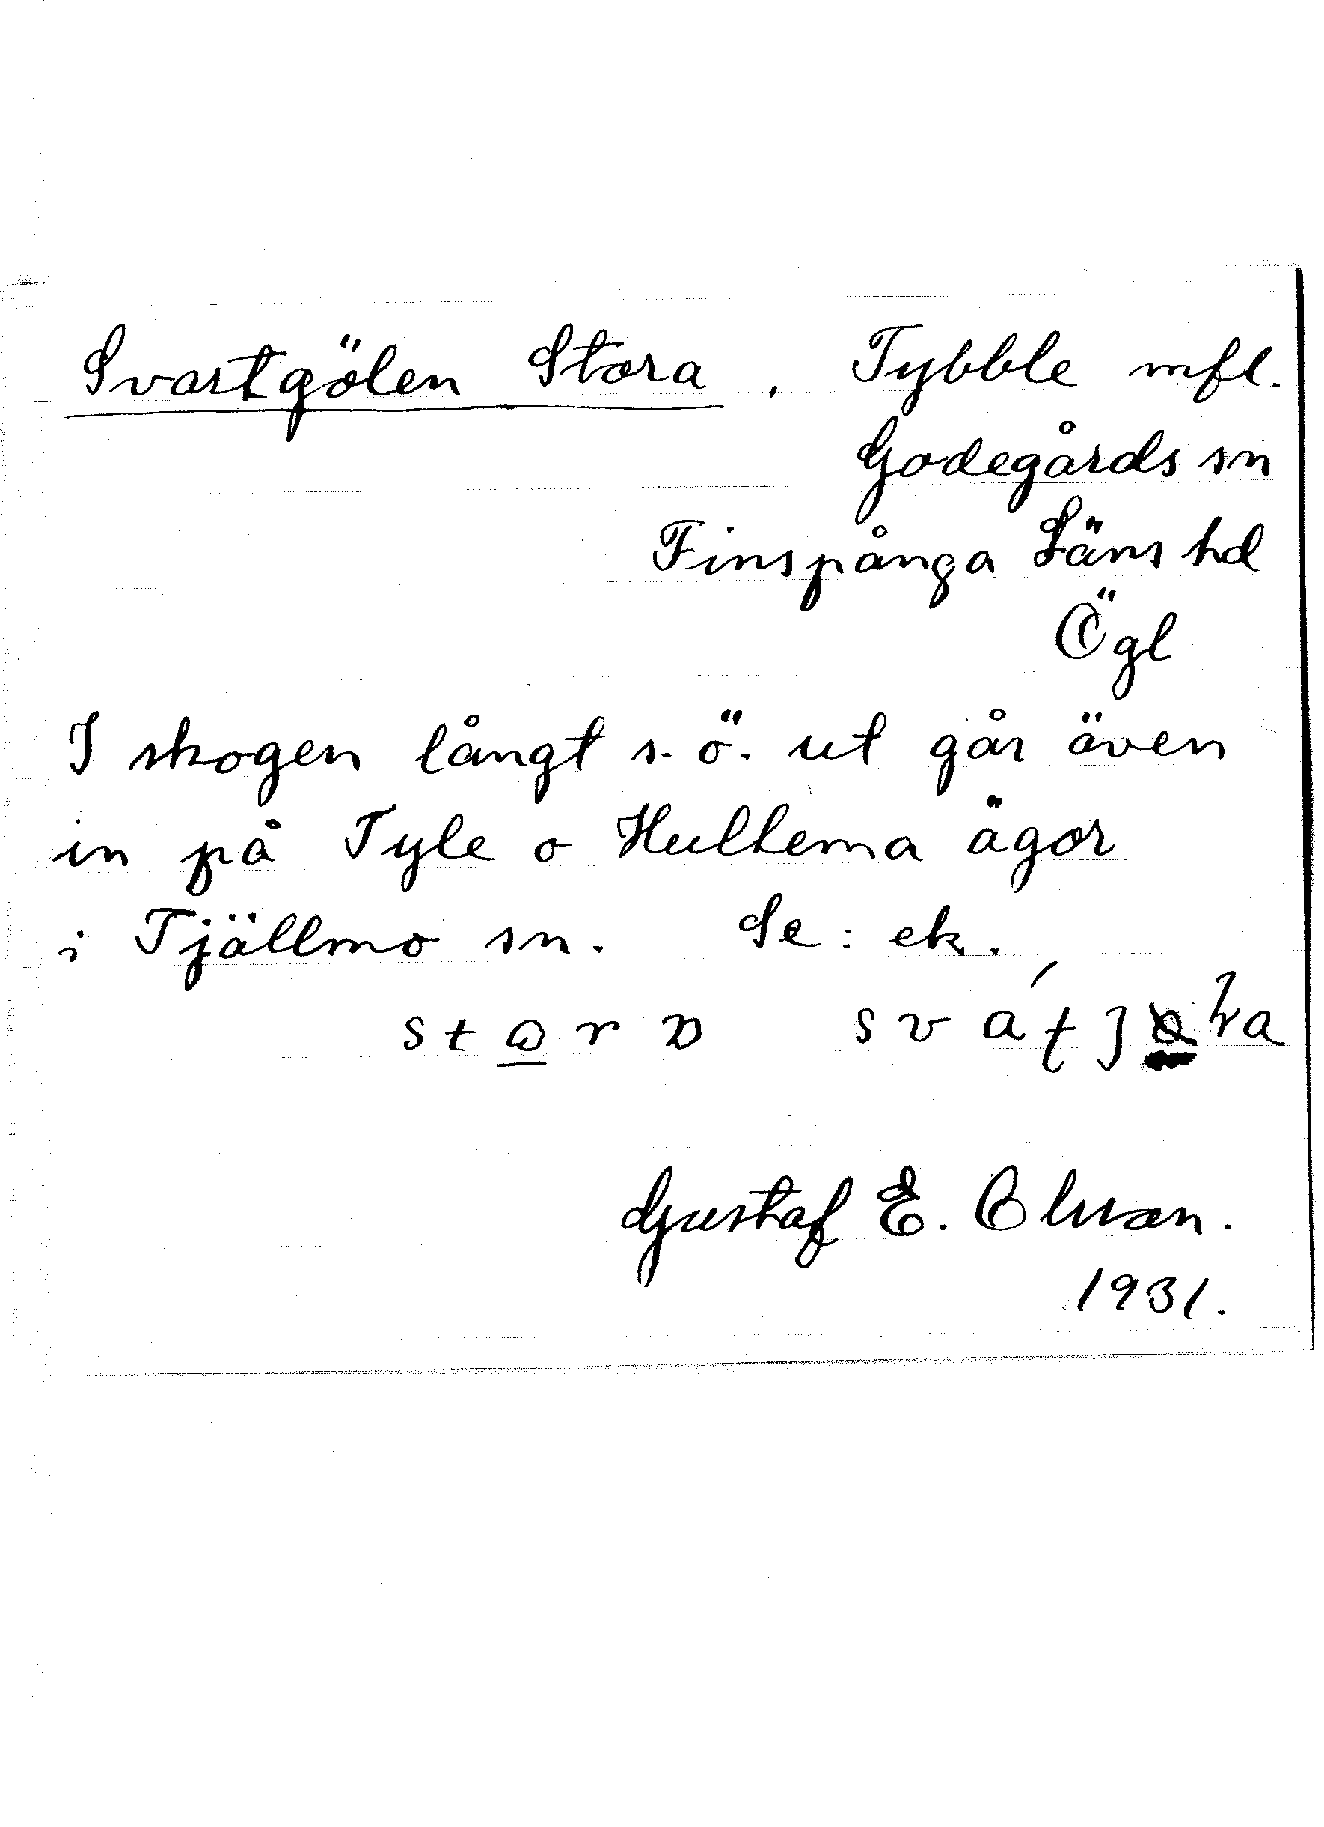 Svartgölen Stora. Tybble mfl.
Godegårds sn
Finspånga Läns hd
Ögl
I skogen långt s.ö. ut går även
in på Tyle o Hultema ägor
i Tjällmo sn. Se: ek.
Gustaf E. Olsson.
1931.